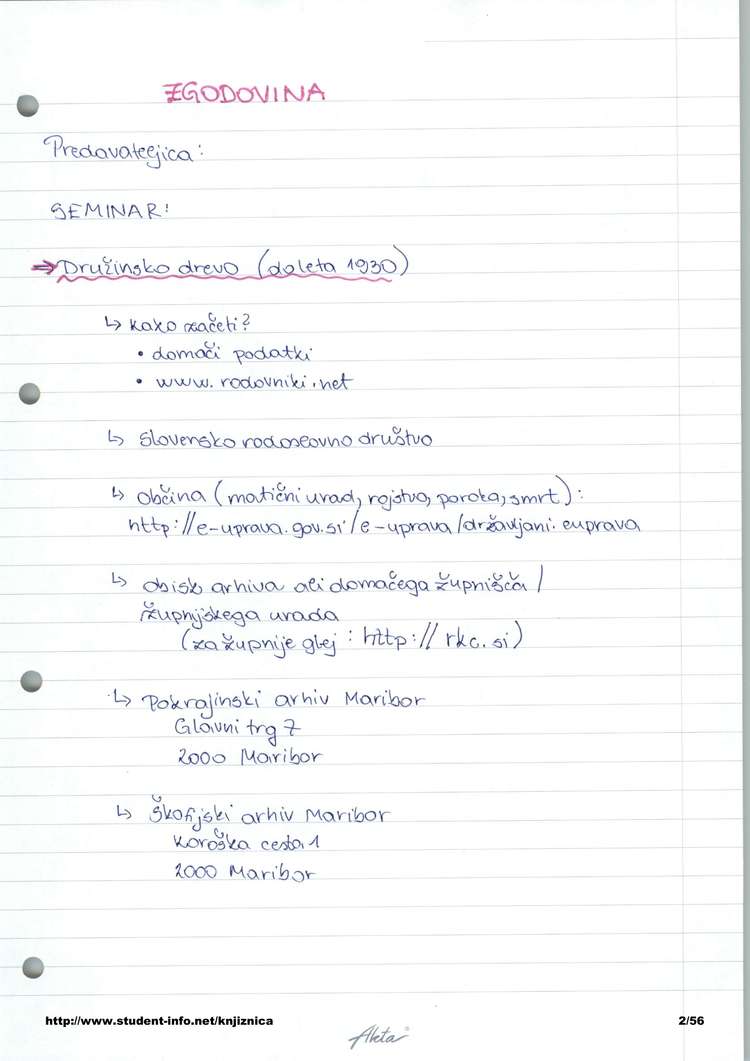 ZGODOVINA
Predavateljica:
SEMINAR:
⇒ Družinsko drevo (do leta 1930)
↳ kako začeti?
• domači podatki
• www.rodovniki.net
↳ Slovensko rodoslovno društvo
↳ občina (matični urad, rojstvo, poroka, smrt):
http://e-uprava.gov.si/e-uprava/državljani.euprava
↳ obisk arhiva ali domačega župnišča /
župnijskega urada
(za župnije glej: http://rkc.si)
↳ Pokrajinski arhiv Maribor
Glavni trg 7
2000 Maribor
↳ Škofijski arhiv Maribor
Koroška cesta 1
2000 Maribor
http://www.student-info.net/knjiznica 2/56
Akta